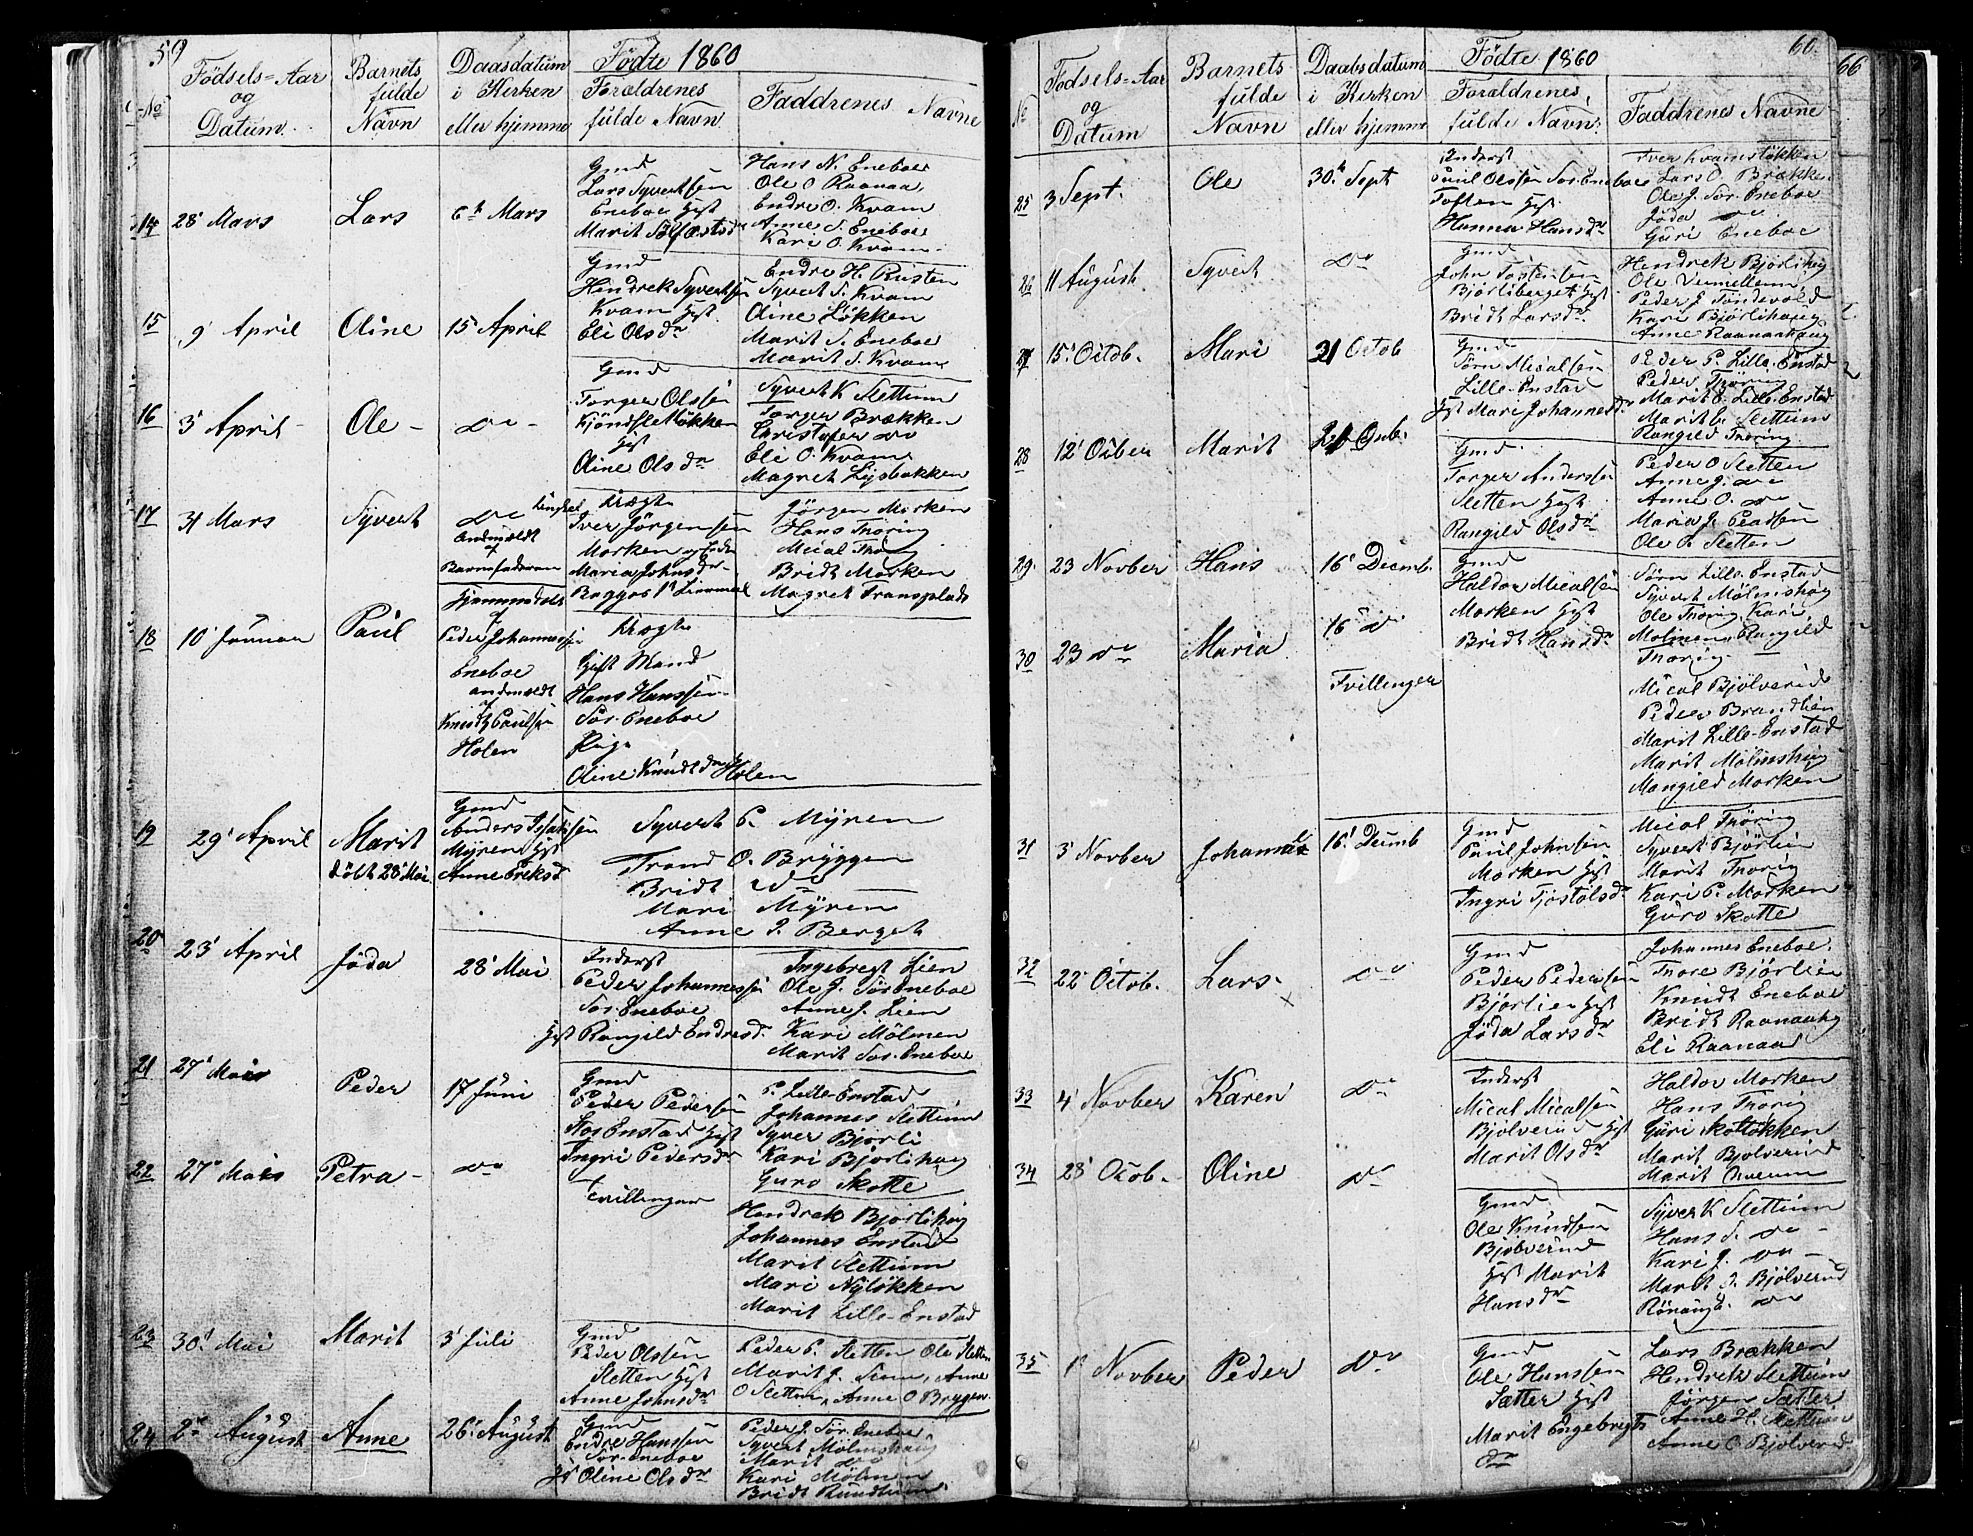 59
Födte 1860
No
Födsels-Aar og Datum
Barnets fulde Navn
Daabsdatum i Kirken eller hjemme
Forældrenes fulde Navn
Faddrenes Navne
14
28' Mars
Lars
6t Mars
Gmd
Lars Syvertsen
Eneboe Hst
Marit
Hans N. Eneboe
Ole O Raanaa
Endre O. Kvam
Anne S. Eneboe
Kari O. Kvam
15
9' April
Oline
15 April
Gmd
Hendrek Syvertsen
Kvam Hst
Eli Olsdr
Endre H. Rusten
Syvert S. Kvam
Oline Løkken
Marit S. Eneboe
Marit S. Kvam
16
3' April
Ole
do
Gmd
Torger Olssen
Hst
Oline Olsdr
Syvert K Slettum
Torger Brækken
Christofer do
Eli O. Kvam
Magret Lysbakken
17
31 Mars
Syvert
do
anmældt
af
Barnefaderen
Uægte
Iver Jörgensen
Morken
Maria Johnsdr
Jörgen Morken
Hans Thoring
Mical Thorg
Bridt Morken
Magret
18
10' Januar
Paul
Hjemmedøbt
af
Peder Johannessen
Eneboe
anmældt
af
Knudt Paulsen
Holen
Uægte
Gift Mand
Hans Hanssen
Sör-Eneboe
Pige
Oline Knudtdr Holen
19
29' April
Marit
döbt 28' Mai
Gmd
Anders
Myren Hst
Anne Ereksd
Syvert P. Myren
Trond O. Bryggen
Bridt do
Mari Myren
Anne J. Berget
20
23' April
Jöda
28' Mai
Inderst
Peder Johannessen
Sör Eneboe
Hst Rangild Endresd.
Ingebregt Lien
Ole J. Sör Eneboe
Anne J. Lien
Kari Mölmen
Marit Sör-Eneboe
21
27' Mai
Peder
17 Juni
Gmd
Peder Pedersen
Stor Enstad Hst
Ingri Pedersdr
P. Lille-Enstad
Johannes Slettum
Syver Bjorli
Kari Bjorlihaug
Guro Skotte
22
27' Mai
Petra
do
Tvillinger
Hendrek Bjorlihaug
Johannes Enstad
Marit Slettum
Mari Nyløkken
Marit Lille-Enstad
23
30' Mai
Marit
3' Juli
Gmd
Peder Olssen
Sletten Hst
Anne Johnsdr
Peder P. Sletten Ole Sletten
Marit J. , Anne
O Slettum, Anne O Brygen
24
2' August
Anne
26' August
Gmd
Endre Hanssen
Sör-Eneboe
Hst Oline Olsdr
Peder J. Sör-Eneboe
Syvert Mölmshaug
Marit do
Kari Mölmen
Bridt
60
66
Födte 1860
No
Födsels-Aar og Datum
Barnets fulde Navn
Daabsdatum i Kirken eller hjemme
Forældrenes fulde Navn
Faddrenes Navne
25
3 Sept.
Ole
30t Sept
Inderst
Paul Olssen Sör-Eneboe
Toften Hst
Hanna Hansdr
Iver Kvamsløkken
Lars O. Brække
Ole J. Sör Eneboe
Jöda do
Guri Eneboe
26
11 August
Syvert
do
Gmd
John Tostensen
Bjorliberget Hst
Bridt Larsdr
Hendrek Bjorlihaug
Ole Vermellem
Peder J Tandevold
Kari Bjorlihaug
Anne Raanaahaug
27
15' Octob.
Mari
21 Octob
Gmd
Sörn Micalsen
Lille-Enstad
Hst Mari Johannesdr
Peder P. Lille-Enstad
Peder Thoring
Marit O. Lille-Enstad
Marit Slettum
Rangild Thoring
28
12' Octber
Marit
Gmd
Torger Anderssen
Sletten Hst
Rangild Olsdr
Peder O Sletten
Anne J. do
Anne O. do
Maria J.
Ole P. Sletten
29
23 Novber
Hans
16' Decmb.
Gmd
Haldor Micalsen
Morken Hst
Bridt Hansdr
Sörn Lille-Enstad
Syvert Mölmshaug
Ole Thorig Kari
Molmen Rangild
Thorig
30
23 do
Maria
16' do
Tvillinger
Mical Bjölverud
Peder Brandlien
Marit Lille-Enstad
Marit Mölmshaug
Rangild Morken
31
3' Novber
Johannes
16' Decmb
Gmd
Paul Johnsen
Morken Hst
Ingri Tjostolsdr
Mical Thorig
Syvert Bjorlien
Marit Thorig
Kari P. Morken
Guro Skotte
32
22' Octob.
Lars
x
do
Gmd
Peder Pedersen
Bjorlien Hst
Jöda Larsdr
Johannes Eneboe
Thore Bjorlien
Knudt Eneboe
Bridt Raanaahg
Eli Raanaa
33
4' Novber
Karen
do
Inderst
Mical Micalsen
Bjölverud Hst
Marit Olsdr
Haldor Morken
Hans Thorig
Guri Skotløkken
Marit Bjolverud
Marit
34
28' Octob.
Oline
do
Gmd
Ole Knudsen
Bjölverud
Hst Marit
Hansdr
Syver K Slettum
Hans S. do
Kari J. do
Marit J. Bjölverud
do
35
1' Novber
Peder
do
Gmd
Ole Hanssen
Sætter Hst
Marit Engebregts
dr
Lars Brækken
Hendrek Slettum
Jörgen Sætter
Anne H. Slettum
Anne O. Bjolverud